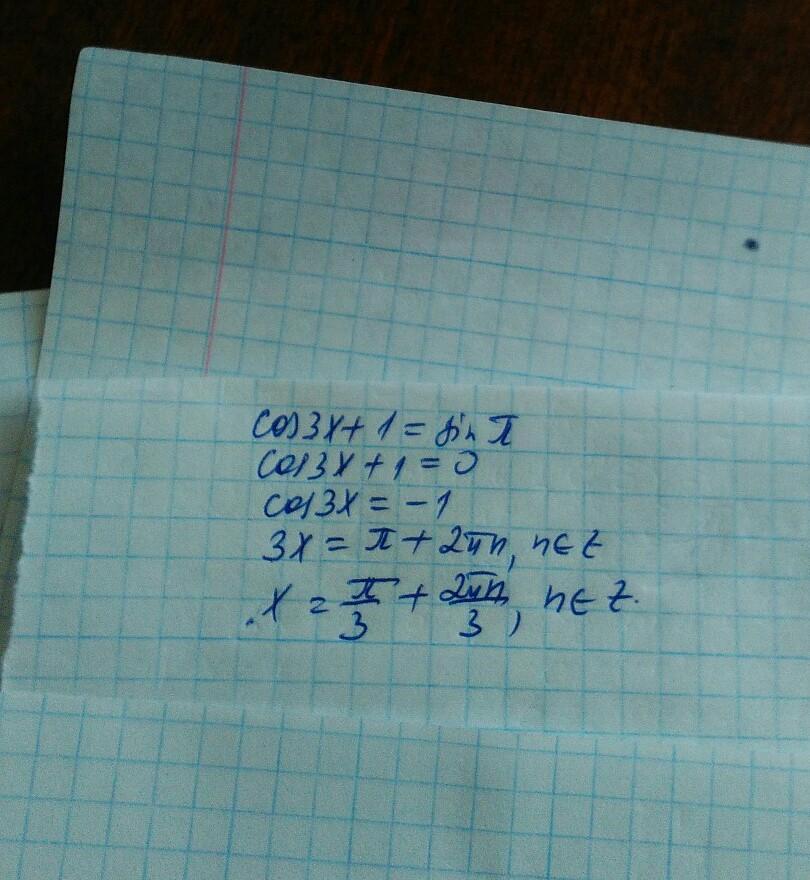 cos3x+1=sin π
cos3x+1=0
cos3x=-1
3x=π+2πn, n∈Z
x=π/3+2πn/3, n∈Z.